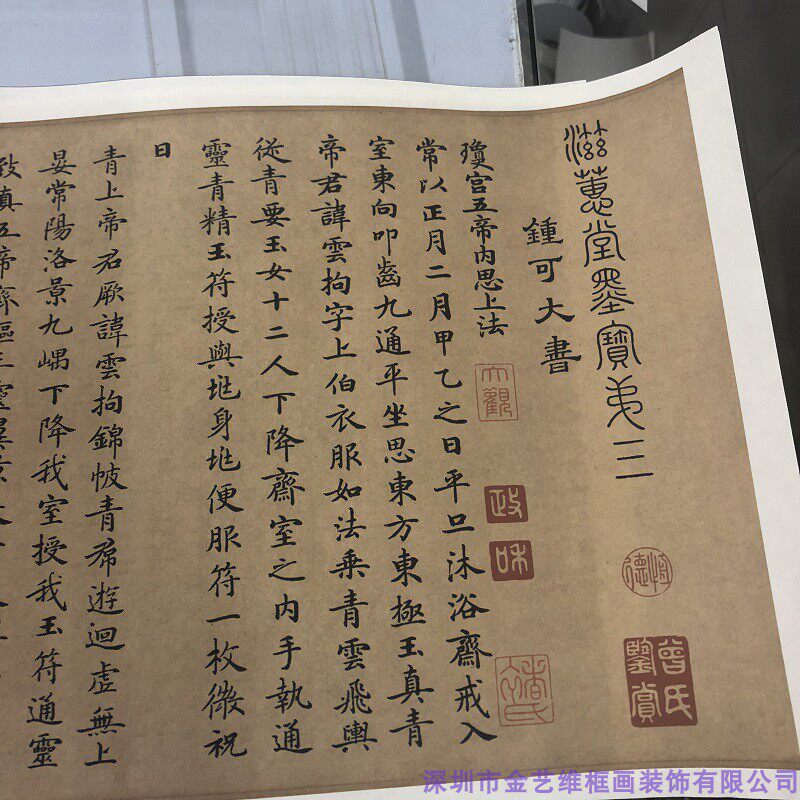 滋蕙堂墨寶弟三
恒德
曾氏鑒賞
鍾可大書
大觀
政
和
瓊宮五帝内思上法
常以正月二月甲乙之日平旦沐浴齋戒入
室東向叩齒九通平坐思東方東極玉真青
帝君諱雲拘字上伯衣服如法乘青雲飛輿
從青要玉女十二人下降齋室之内手執通
靈青精玉符授與垗身垗便服符一枚微祝
曰
青上帝君厥諱雲拘錦帔青帬遊迴虛無上
晏常陽洛景九嵎下降我室授我玉符通靈
致真五帝齊軀三靈翼景
深圳市金艺维框画装饰有限公司